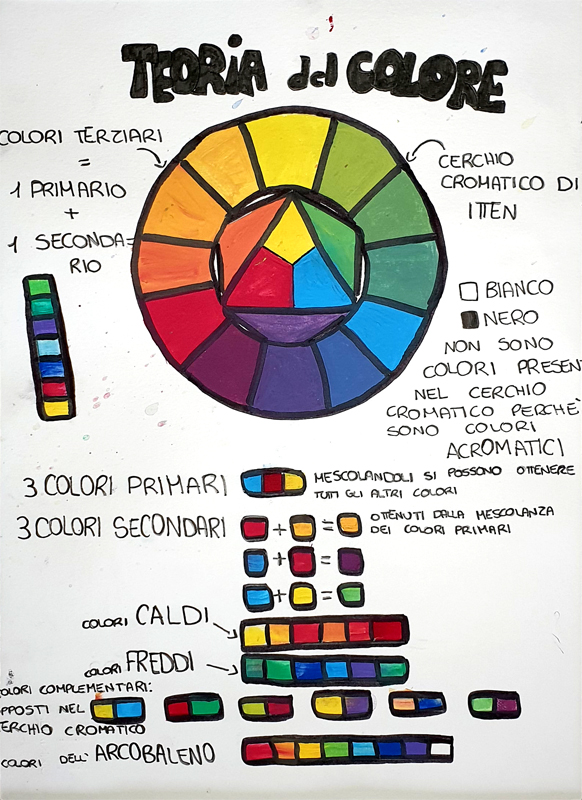 TEORIA del COLORE
COLORI TERZIARI
=
1 PRIMARIO
+
1 SECONDA=
RIO
CERCHIO
CROMATICO DI
ITTEN
BIANCO
NERO
NON SONO
COLORI PRESEN
NEL CERCHIO
CROMATICO PERCHÈ
SONO COLORI
ACROMATICI
3 COLORI PRIMARI
MESCOLANDOLI SI POSSONO OTTENERE
TUTTI GLI ALTRI COLORI
3 COLORI SECONDARI
+ =
OTTENUTI DALLA MESCOLANZA
DEI COLORI PRIMARI
+ =
+ =
COLORI CALDI
COLORI FREDDI
OLORI COMPLEMENTARI:
PPOSTI NEL
ERCHIO CROMATICO
COLORI DELL' ARCOBALENO